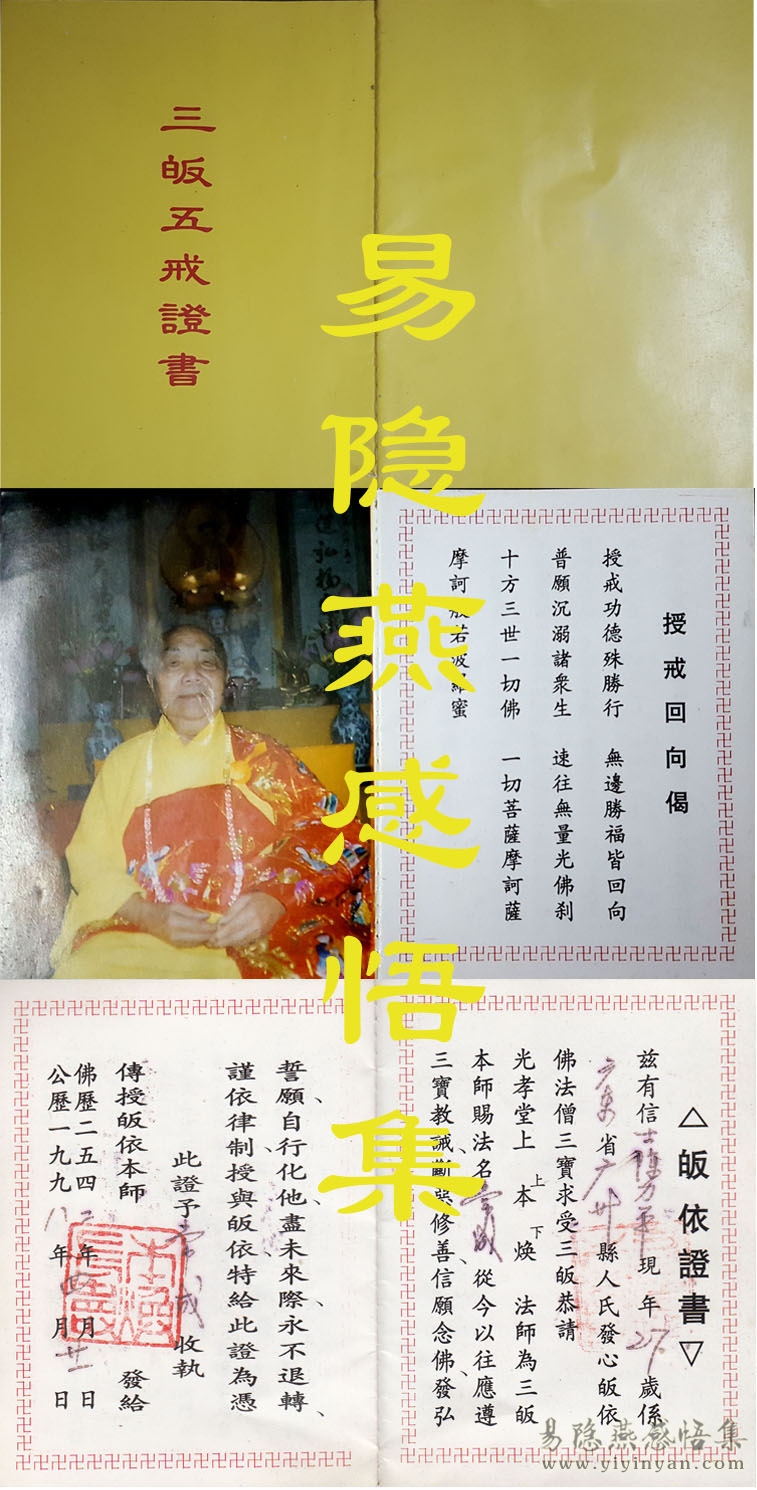 三皈五戒證書
易隐燕感悟集
弘揚
授戒回向偈
授戒功德殊勝行 無邊勝福皆回向
普願沉溺諸衆生 速往無量光佛刹
十方三世一切佛 一切菩薩摩訶薩
摩訶般若波羅蜜
△皈依證書▽
茲有信士 現年27歲係
廣東省广州縣人氏發心皈依
佛法僧三寶求受三皈恭請
光孝堂上 上本下焕 法師為三皈
本師賜法名 從今以往應遵
三寶教誡、斷惡修善、信願念佛、發弘
誓願、自行化他、盡未來際、永不退轉、
謹依律制、授與皈依、特給此證為憑
此證予 收執
傳授皈依本師 發給
佛歷二五四 年 月 日
公歷一九九八年四月廿一日
本煥
易隐燕感悟集
www.yiyinyan.com